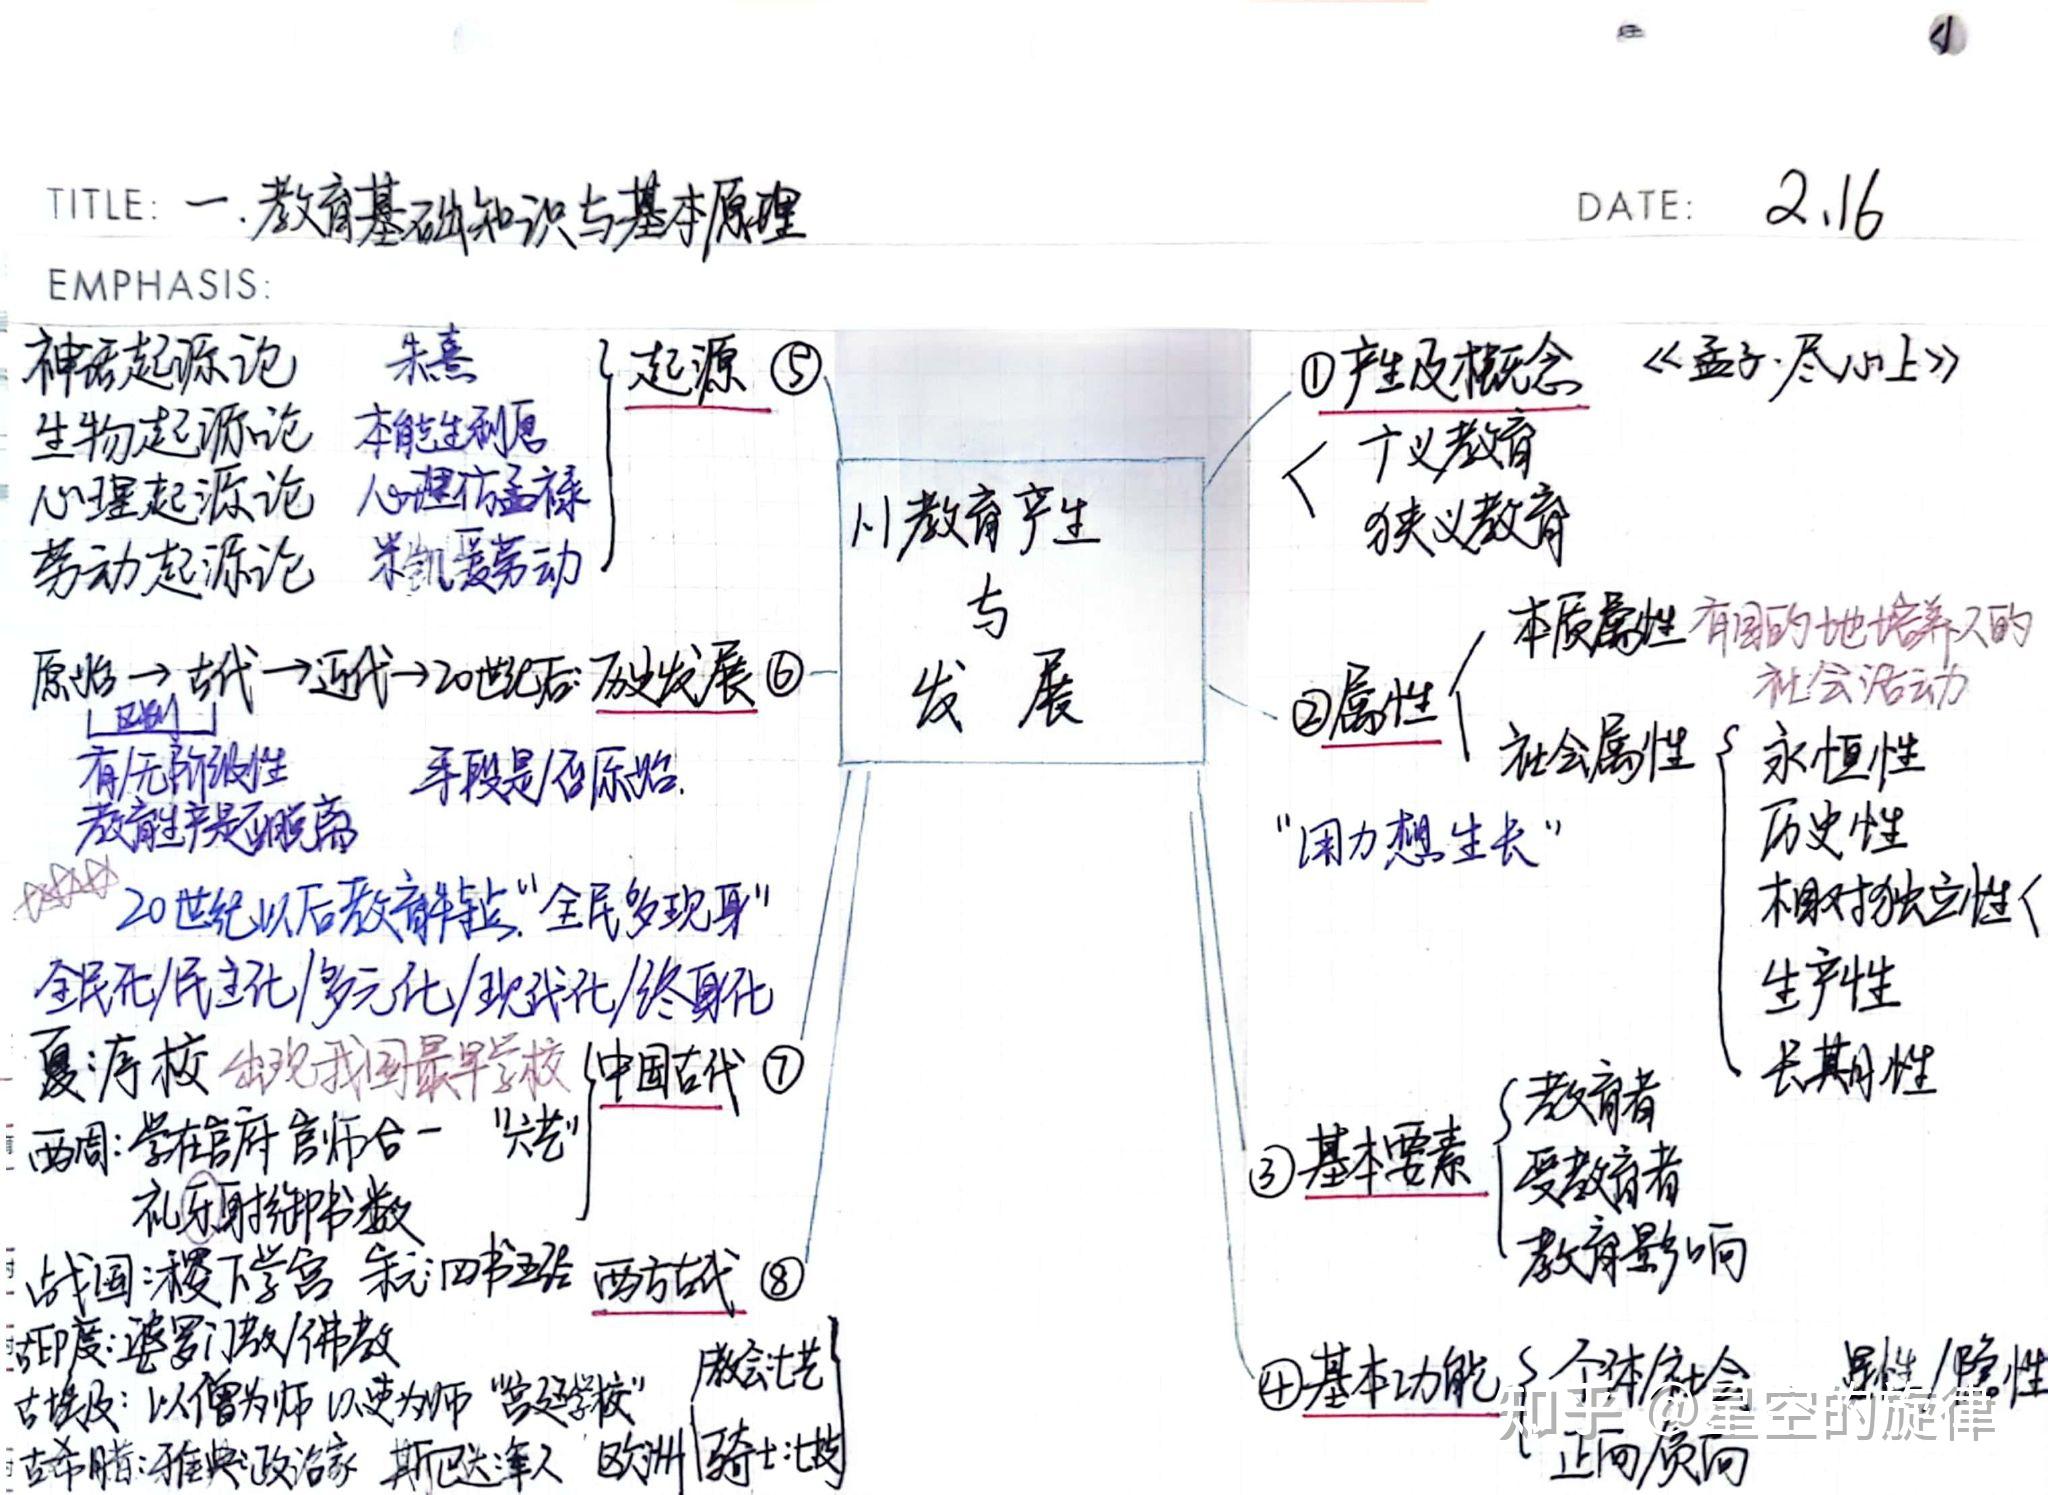 TITLE: 一.教育基础知识与基本原理
DATE: 2.16
EMPHASIS:
神话起源论 朱熹
生物起源论 本能生利息
心理起源论 心理仿孟禄
劳动起源论 米凯爱劳动
起源 ⑤
原始→古代→近代→20世纪后: 历史发展 ⑥
区别
有/无阶级性 手段是/否原始.
教育生产是否脱离
20世纪以后教育特点:“全民多现身”
全民化/民主化/多元化/现代化/终身化
夏:序校 出现我国最早学校 中国古代 ⑦
西周:学在官府 官师合一 “六艺”
礼乐射御书数
战国:稷下学宫 宋元:四书五经 西方古代 ⑧
古印度:婆罗门教/佛教
古埃及:以僧为师 以吏为师 “宫廷学校”
古希腊:雅典:政治家 斯巴达:军人 欧洲
教会:七艺
骑士:七技
1.1教育产生
与
发展
①产生及概念 《孟子·尽心上》
广义教育
狭义教育
②属性
本质属性 有目的地培养人的
社会活动
社会属性
永恒性
历史性
相对独立性
生产性
长期性
“国力想生长”
③基本要素
教育者
受教育者
教育影响
④基本功能 个体/社会 显性/隐性
正向/负向
知乎 @星空的旋律